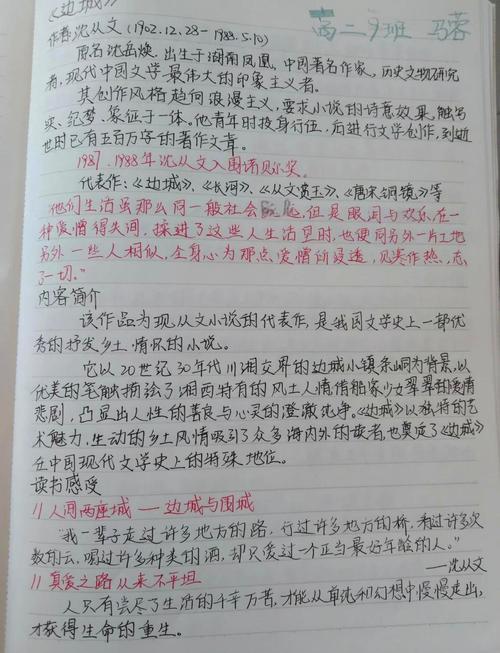 《边城》
高二9班 马蓉
作者:沈从文(1902.12.28-1988.5.10)
原名沈岳焕,出生于湖南凤凰,中国著名作家,历史文物研究
者,现代中国文学最伟大的印象主义者。
其创作风格趋向浪漫主义,要求小说的诗意效果,融写
实、纪梦、象征于一体。他青年时投身行伍,后进行文学创作,到逝
世时已有五百万字的著作文章。
1987、1988年沈从文入围诺贝尔奖。
代表作:《边城》、《长河》、《从文赏玉》、《唐宋铜镜》等
"他们生活虽那么同一般社会 ,但是眼泪与欢乐,在一
种爱憎得失间,揉进了这些人生活里时,也便同另外一片土地
另外一些人相似,全身心为那点爱憎所浸透,见寒作热,忘
了一切。"
内容简介
该作品为现从文小说的代表作,是我国文学史上一部优
秀的抒发乡土情怀的小说。
它以20世纪30年代川湘交界的边城小镇茶峒为背景,以
优美的笔触描绘了湘西特有的风土人情借船家少女翠翠的爱情
悲剧,凸显出人性的善良与心灵的澄澈纯净。《边城》以独特的艺
术魅力、生动的乡土风情吸引了众多海内外的读者,也奠定了《边城》
在中国现代文学史上的特殊地位。
读书感受
// 人间两座城 — 边城与围城
"我一辈子走过许多地方的路,行过许多地方的桥,看过许多次
数的云,喝过许多种类的酒,却只爱过一个正当最好年龄的人。"
——沈从文
// 真爱之路从来不平坦
人只有尝尽了生活的千辛万苦,才能从单纯和幻想中慢慢走出,
才获得生命的重生。